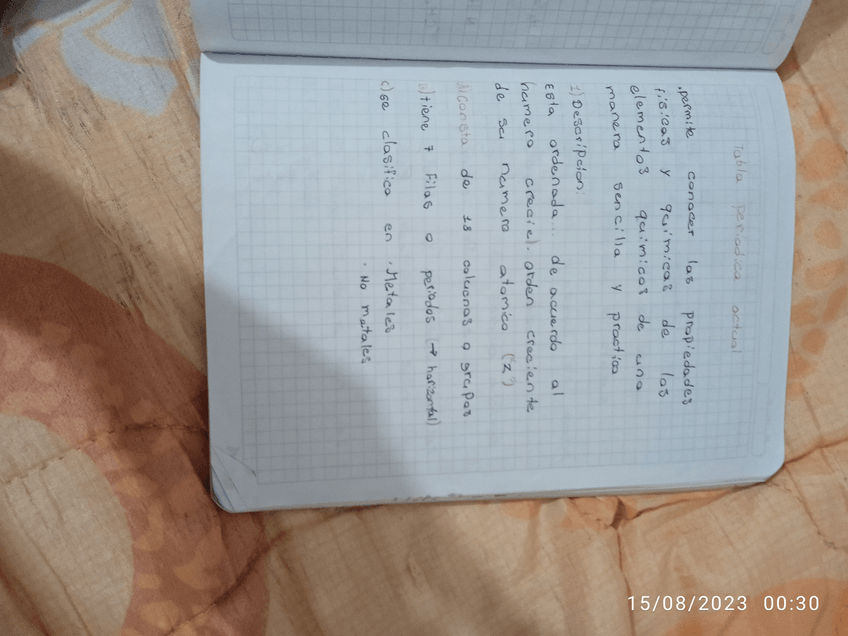 Tabla periodica actual
.permite conocer las propiedades
fisicas y químicas de los
elementos químicos de una
manera sencilla y practica
1) Descripcion:
Esta ordenada... de acuerdo al
numero crecie). orden creciente
de su numero atomico ("z")
a) consta de 18 columnas o grupos
b) tiene 7 Filas o periodos (→ horizontal)
c) se clasifica en . Metales
. No metales
15/08/2023 00:30